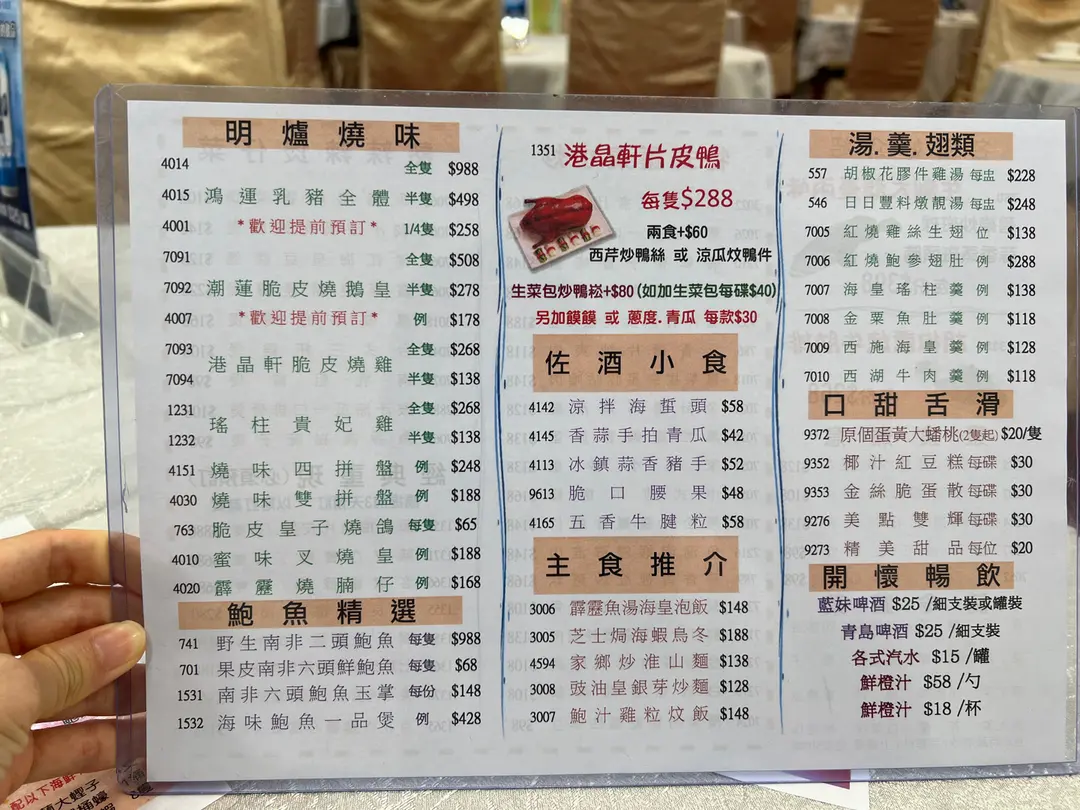 明爐燒味
4014 全隻 $988
4015 鴻運乳豬全體 半隻 $498
4001 *歡迎提前預訂* 1/4隻 $258
7091 全隻 $508
7092 潮蓮脆皮燒鵝皇 半隻 $278
4007 *歡迎提前預訂* 例 $178
7093 全隻 $268
港晶軒脆皮燒雞
7094 半隻 $138
1231 全隻 $268
瑤柱貴妃雞
1232 半隻 $138
4151 燒味四拼盤 例 $248
4030 燒味雙拼盤 例 $188
763 脆皮皇子燒鴿 每隻 $65
4010 蜜味叉燒皇 例 $188
4020 霹靂燒腩仔 例 $168
鮑魚精選
741 野生南非二頭鮑魚 每隻 $988
701 果皮南非六頭鮮鮑魚 每隻 $68
1531 南非六頭鮑魚玉掌 每份 $148
1532 海味鮑魚一品煲 例 $428
1351 港晶軒片皮鴨
每隻$288
兩食+$60
西芹炒鴨絲 或 涼瓜炆鴨件
生菜包炒鴨崧+$80 (如加生菜包每碟$40)
另加饃饃 或 蔥度.青瓜 每款$30
佐酒小食
4142 涼拌海蜇頭 $58
4145 香蒜手拍青瓜 $42
4113 冰鎮蒜香豬手 $52
9613 脆口腰果 $48
4165 五香牛腱粒 $58
主食推介
3006 霹靂魚湯海皇泡飯 $148
3005 芝士焗海蝦烏冬 $188
4594 家鄉炒淮山麵 $138
3008 豉油皇銀芽炒麵 $128
3007 鮑汁雞粒炆飯 $148
湯.羹.翅類
557 胡椒花膠件雞湯 每盅 $228
546 日日豐料燉靚湯 每盅 $248
7005 紅燒雞絲生翅 位 $138
7006 紅燒鮑參翅肚 例 $288
7007 海皇瑤柱羹 例 $138
7008 金粟魚肚羹 例 $118
7009 西施海皇羹 例 $128
7010 西湖牛肉羹 例 $118
口甜舌滑
9372 原個蛋黃大蟠桃(2隻起) $20/隻
9352 椰汁紅豆糕 每碟 $30
9353 金絲脆蛋散 每碟 $30
9276 美點雙輝 每碟 $30
9273 精美甜品 每位 $20
開懷暢飲
藍妹啤酒 $25 /細支裝或罐裝
青島啤酒 $25 /細支裝
各式汽水 $15 /罐
鮮橙汁 $58 /勺
鮮橙汁 $18 /杯
配以下海鮮